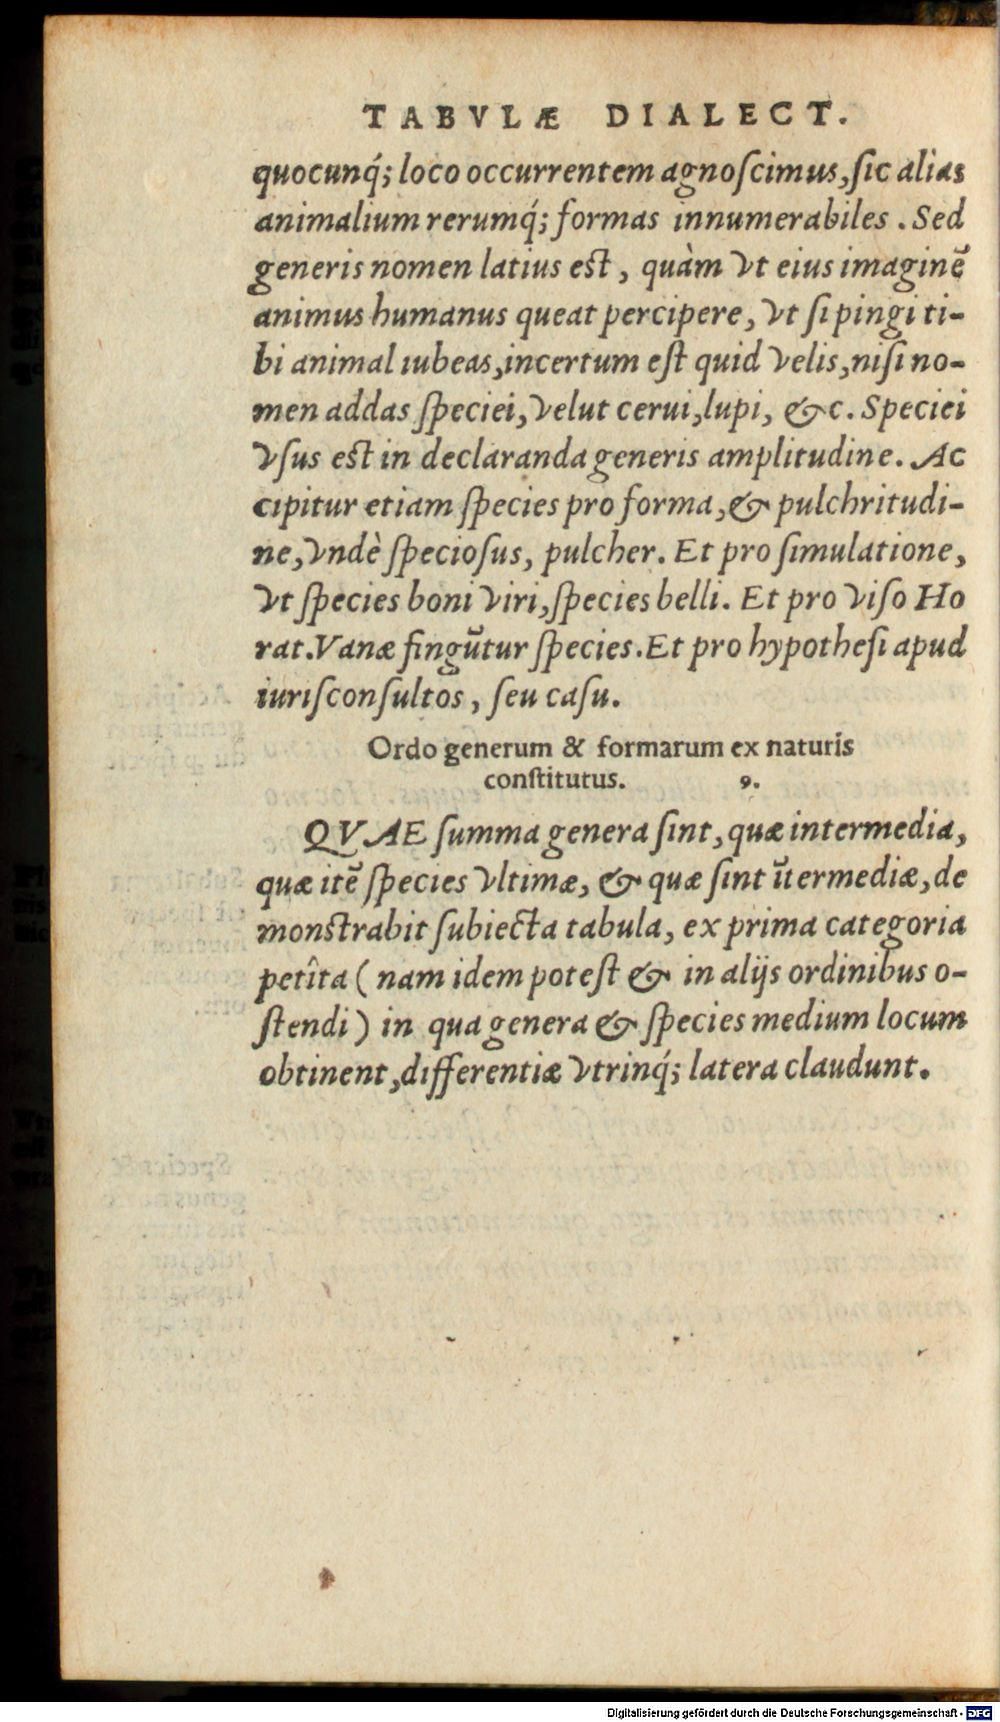 TABVLÆ DIALECT.
quocunq́; loco occurrentem agnoſcimus, ſic alias
animalium rerumq́; formas innumerabiles. Sed
generis nomen latius est, quàm vt eius imaginē
animus humanus queat percipere, vt ſi pingi ti-
bi animal iubeas, incertum eſt quid velis, niſi no-
men addas ſpeciei, velut cerui, lupi, &c. Speciei
vſus est in declaranda generis amplitudine. Ac
cipitur etiam ſpecies pro forma, & pulchritudi-
ne, vndè ſpecioſus, pulcher. Et pro ſimulatione,
vt ſpecies boni viri, ſpecies belli. Et pro viſo Ho
rat. Vanæ fingūtur ſpecies. Et pro hypotheſi apud
iuriſconſultos, ſeu caſu.
Ordo generum & formarum ex naturis
conſtitutus. 9.
QVAE ſumma genera ſint, quæ intermedia,
quæ itē ſpecies vltimæ, & quæ ſint ītermediæ, de
monstrabit ſubiecta tabula, ex prima categoria
petîta (nam idem poteſt & in alijs ordinibus o-
ſtendi) in qua genera & ſpecies medium locum
obtinent, differentiæ vtrinq́; latera claudunt.
Digitalisierung gefördert durch die Deutsche Forschungsgemeinschaft - DFG